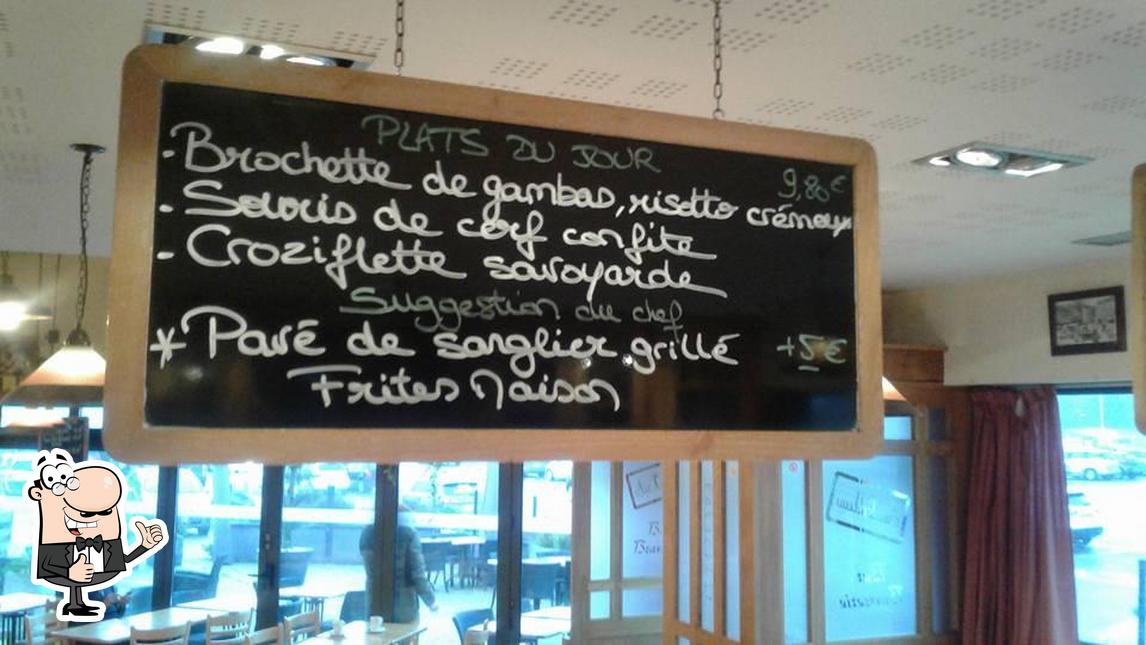 PLATS DU JOUR
9,80€
- Brochette de gambas, risotto crémeux
- Souris de cerf confite
- Croziflette savoyarde
Suggestion du chef
* Pavé de sanglier grillé +5€
Frites Maison